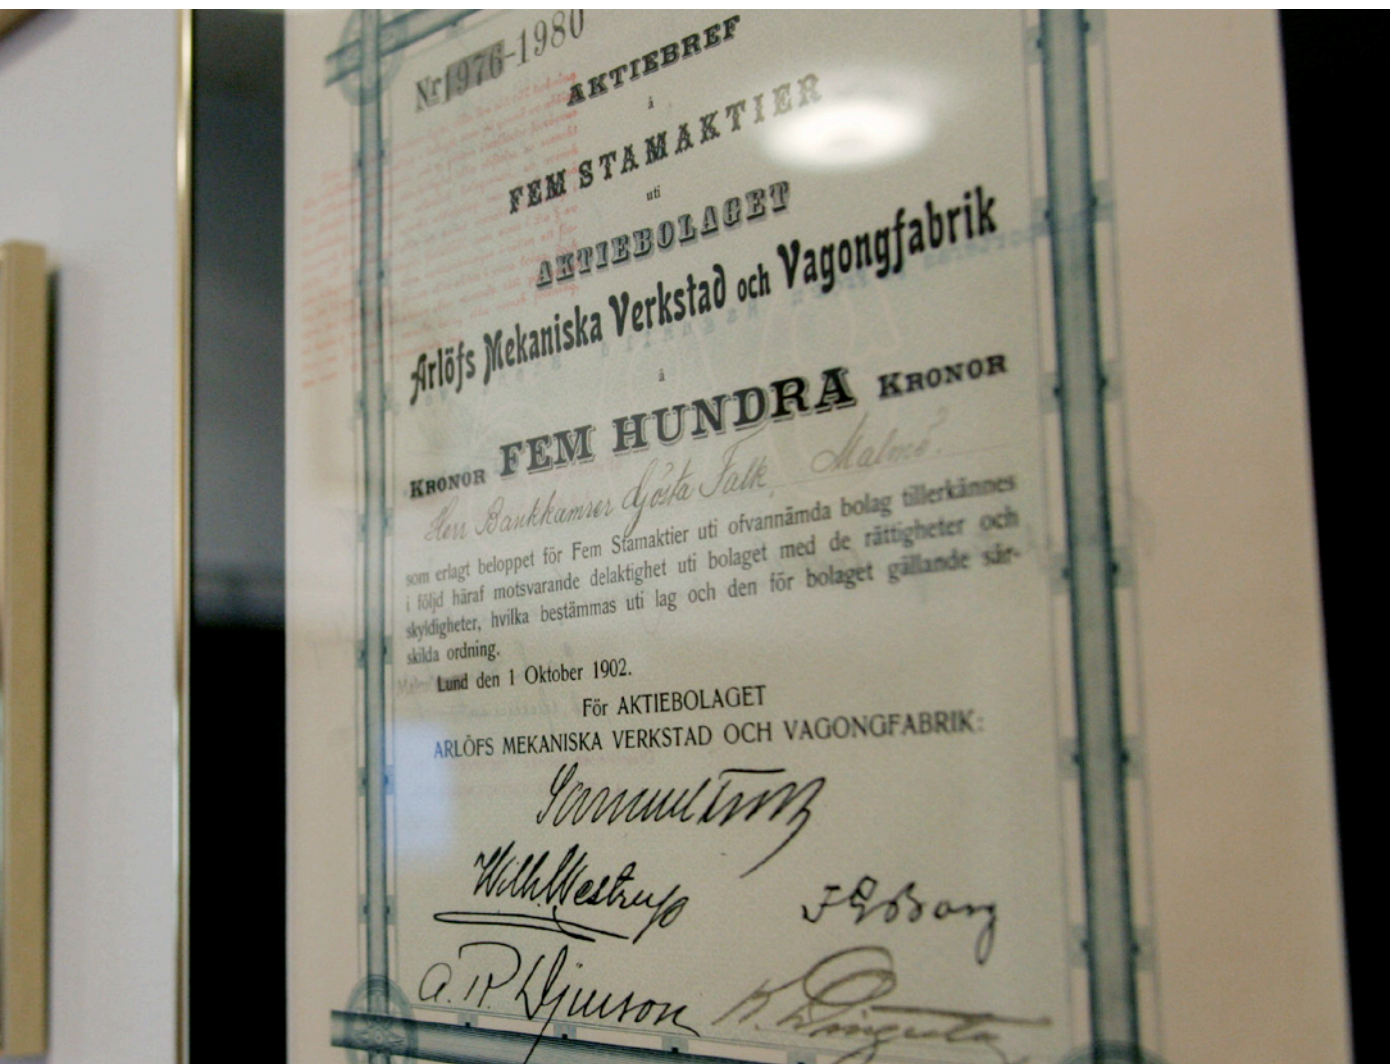 Nr 1976-1980
AKTIEBREF
å
FEM STAMAKTIER
uti
AKTIEBOLAGET
Arlöfs Mekaniska Verkstad och Vagongfabrik
å
KRONOR FEM HUNDRA KRONOR
Herr Bankkamrer Gösta Falk, Malmö.
som erlagt beloppet för Fem Stamaktier uti ofvannämda bolag tillerkännes
i följd häraf motsvarande delaktighet uti bolaget med de rättigheter och
skyldigheter, hvilka bestämmas uti lag och den för bolaget gällande sär-
skilda ordning.
Lund den 1 Oktober 1902.
För AKTIEBOLAGET
ARLÖFS MEKANISKA VERKSTAD OCH VAGONGFABRIK:
Wilh. Westrup